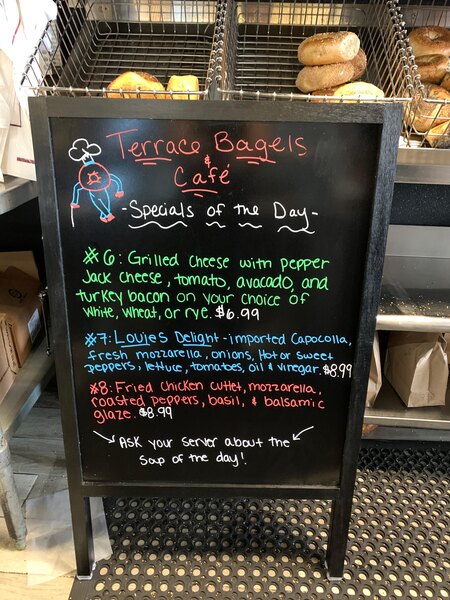 Terrace Bagels
&
Café
- Specials of the Day -
#6: Grilled cheese with pepper
Jack cheese, tomato, avacado, and
turkey bacon on your choice of
white, wheat, or rye. $6.99
#7: Louies Delight - imported Capocolla,
fresh mozzarella, onions, Hot or sweet
peppers, lettuce, tomatoes, oil & vinegar. $8.99
#8: Fried chicken cutlet, mozzarella,
roasted peppers, basil, & balsamic
glaze. $8.99
Ask your server about the
Soup of the day!